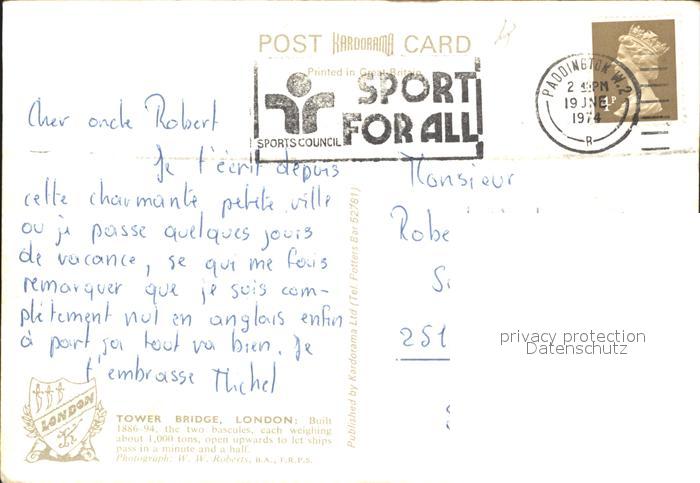 POST KARDORAMA CARD
Printed in Great Britain
SPORTS COUNCIL
SPORT
FOR ALL
PADDINGTON W.2
2 PM
19 JNE
1974
R
Cher oncle Robert
Je t'écrit depuis
cette charmante petite ville
ou je passe quelques jouis
de vacance, se qui me fais
remarquer que je suis com-
plètement nul en anglais enfin
à part ça tout va bien. Je
t'embrasse Michel
Monsieur
Robe
251
privacy protection
Datenschutz
Published by Kardorama Ltd (Tel. Potters Bar 52781)
LONDON
TOWER BRIDGE, LONDON: Built
1886-94, the two bascules, each weighing
about 1,000 tons, open upwards to let ships
pass in a minute and a half.
Photograph: W. W. Roberts, B.A., F.R.P.S.